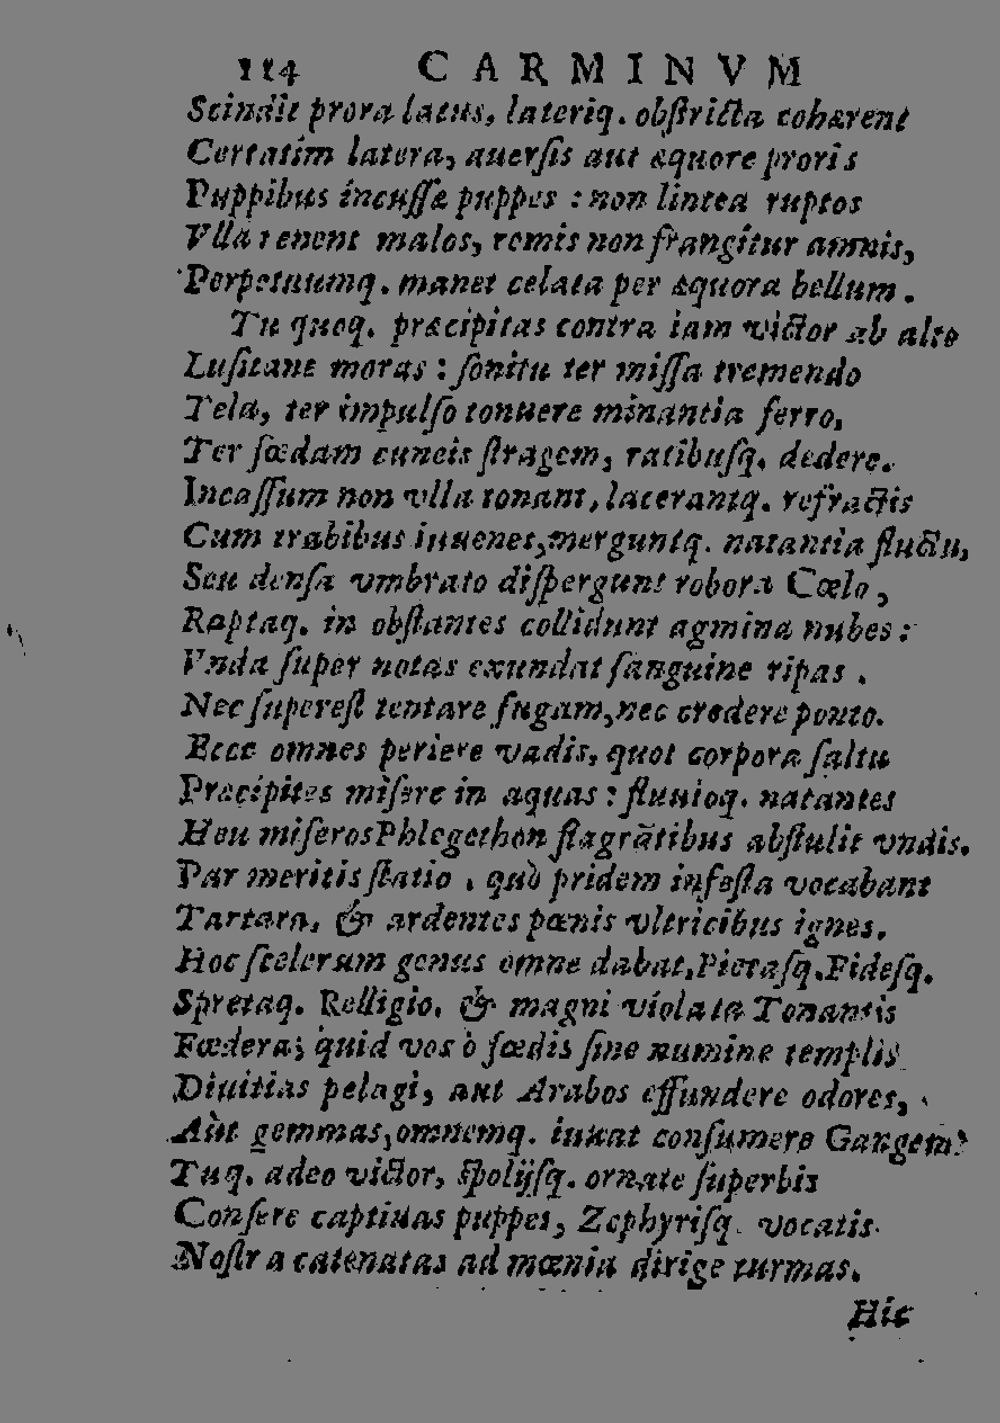 114 CARMINVM
Scindit prora latus, lateriq. obſtricta cohærent
Certatim latera, auerſis aut æquore proris
Puppibus incuſſæ puppes : non lintea ruptos
Vlla tenent malos, remis non frangitur amnis,
Perpetuumq. manet celata per æquora bellum.
Tu quoq. præcipitas contra iam victor ab alto
Luſitane moras : ſonitu ter miſſa tremendo
Tela, ter impulſo tonuere minantia ferro,
Ter fœdam cuneis ſtragem, ratibuſq. dedere.
Incaſſum non vlla tonant, lacerantq. refractis
Cum trabibus iuuenes, merguntq. natantia fluctu,
Seu denſa vmbrato diſpergunt robora Cœlo,
Raptaq. in obſtantes collidunt agmina nubes :
Vnda ſuper notas exundat ſanguine ripas.
Nec ſupereſt tentare fugam, nec credere ponto.
Ecce omnes periere vadis, quot corpora ſaltu
Præcipites miſere in aquas : fluuioq. natantes
Heu miſeros Phlegethon flagrātibus abſtulit vndis.
Par meritis ſtatio. quò pridem infeſta vocabant
Tartara, & ardentes pœnis vltricibus ignes.
Hoc ſcelerum genus omne dabat, Pietaſq. Fideſq.
Spretaq. Relligio. & magni violata Tonantis
Fœdera; quid vos ò fœdis ſine numine templis
Diuitias pelagi, aut Arabos effundere odores,
Aut gemmas, omnemq. iuuat conſumere Gangem?
Tuq. adeo victor, ſpolijſq. ornate ſuperbis
Conſere captiuas puppes, Zephyriſq. vocatis
Noſtra catenatas ad mœnia dirige turmas.
Hic